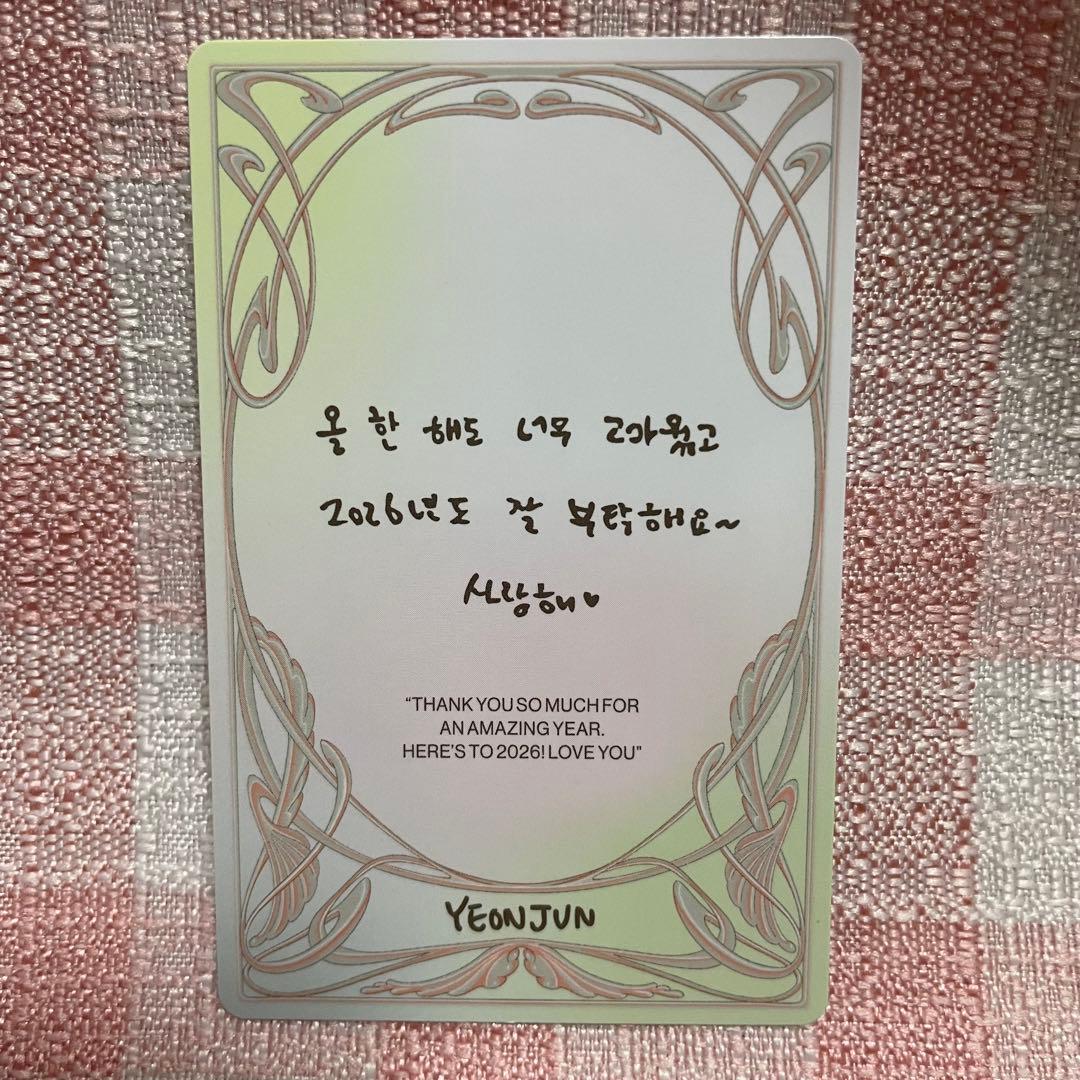 올 한 해도 너무 고마웠고
2026년도 잘 부탁해요~
사랑해♥
“THANK YOU SO MUCH FOR
AN AMAZING YEAR.
HERE’S TO 2026! LOVE YOU”
YEONJUN